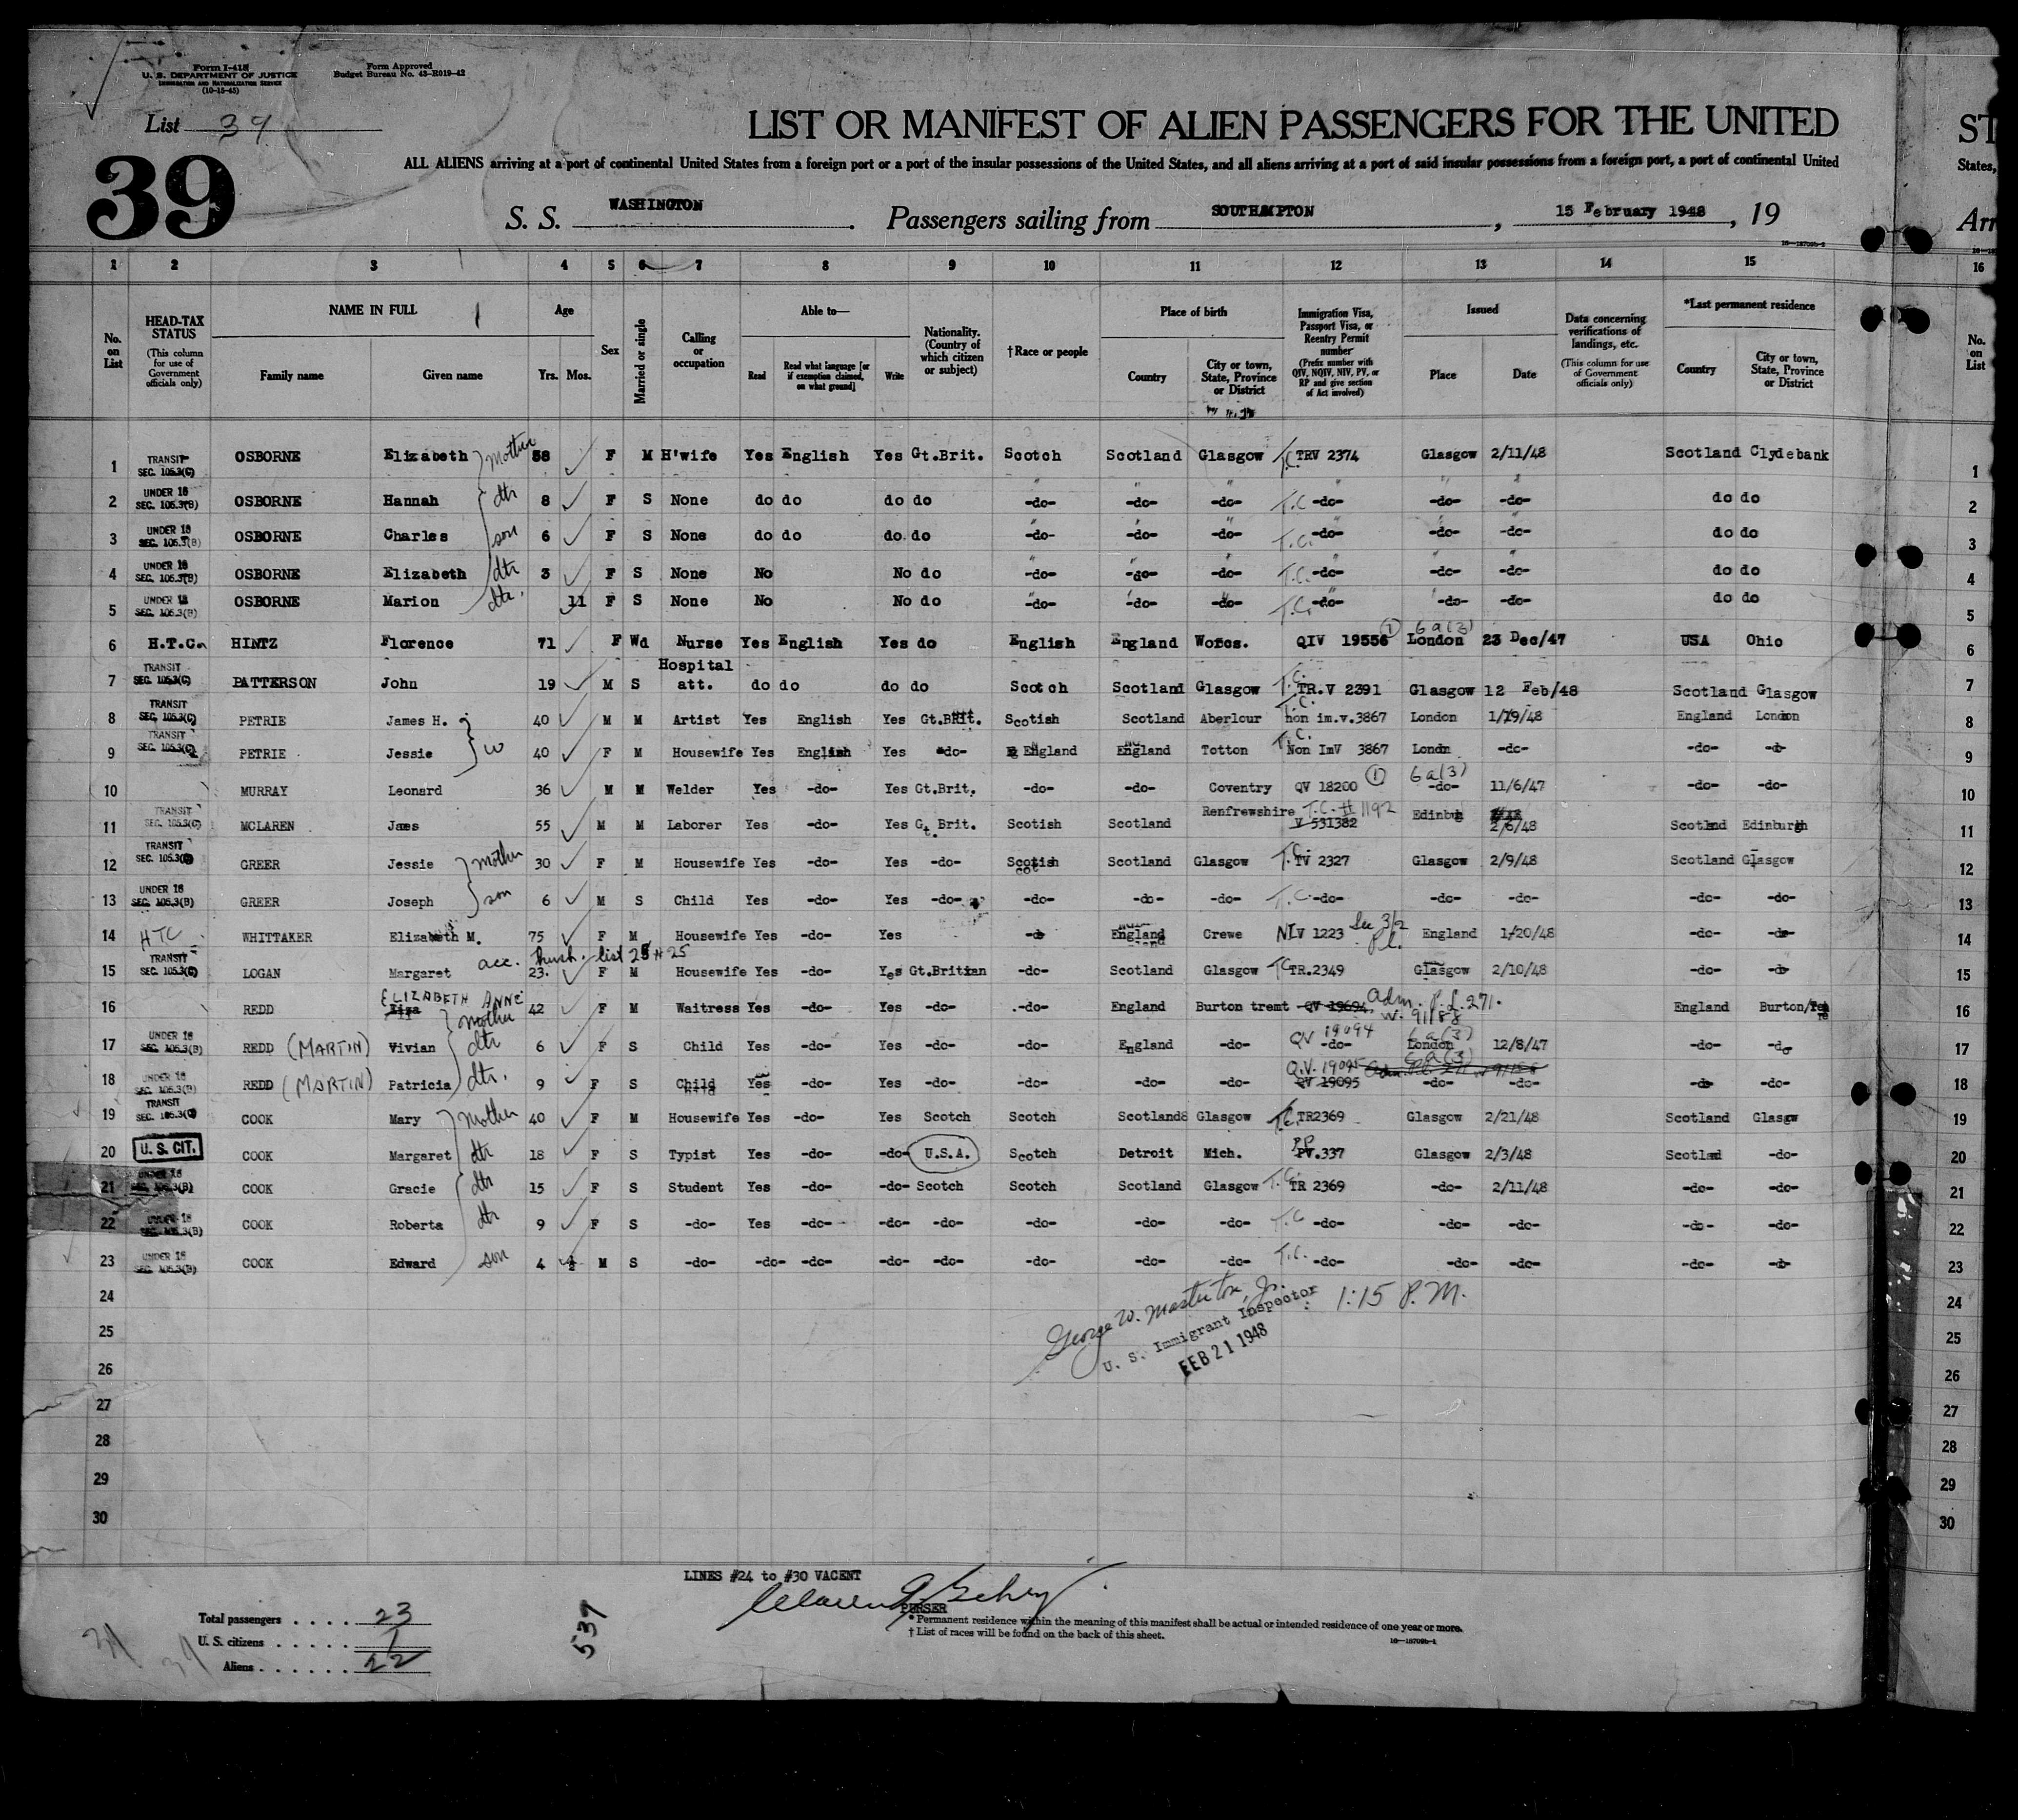 Form I-415
U. S. DEPARTMENT OF JUSTICE
IMMIGRATION AND NATURALIZATION SERVICE
(10-15-45)
Form Approved
Budget Bureau No. 43-R019-42
List 39
39
LIST OR MANIFEST OF ALIEN PASSENGERS FOR THE UNITED
ST
ALL ALIENS arriving at a port of continental United States from a foreign port or a port of the insular possessions of the United States, and all aliens arriving at a port of said insular possessions from a foreign port, a port of continental United
States,
S. S. WASHINGTON. Passengers sailing from SOUTHAMPTON, 15 February 1948, 19
Arr
16—18709b-1
1 2 3 4 5 6 7 8 9 10 11 12 13 14 15 16
No. on List
HEAD-TAX STATUS (This column for use of Government officials only)
NAME IN FULL
Family name Given name
Age Yrs. Mos.
Sex
Married or single
Calling or occupation
Able to— Read Read what language [or if exemption claimed, on what ground] Write
Nationality. (Country of which citizen or subject)
†Race or people
Place of birth Country City or town, State, Province or District
Immigration Visa, Passport Visa, or Reentry Permit number (Prefix number with QIV, NQIV, NIV, PV, or RP and give section of Act involved)
Issued Place Date
Data concerning verifications of landings, etc. (This column for use of Government officials only)
*Last permanent residence Country City or town, State, Province or District
No. on List
1 TRANSIT SEC. 105.3(C) OSBORNE Elizabeth mother 58 F M H'wife Yes English Yes Gt.Brit. Scotch Scotland Glasgow T.C. TRV 2374 Glasgow 2/11/48 Scotland Clydebank 1
2 UNDER 18 SEC. 105.3(B) OSBORNE Hannah dtr 8 F S None do do do do -do- -do- -do- T.C. -do- -do- -do- do do 2
3 UNDER 18 SEC. 105.3(B) OSBORNE Charles son 6 F S None do do do do -do- -do- -do- T.C. -do- -do- -do- do do 3
4 UNDER 18 SEC. 105.3(B) OSBORNE Elizabeth dtr 3 F S None No No do -do- -do- -do- T.C. -do- -do- -do- do do 4
5 UNDER 18 SEC. 105.3(B) OSBORNE Marion dtr. 11 F S None No No do -do- -do- -do- T.C. -do- -do- -do- do do 5
6 H.T.C. HINTZ Florence 71 F Wd Nurse Yes English Yes do English England Worcs. QIV 19556 (1) 6a(3) London 23 Dec/47 USA Ohio 6
7 TRANSIT SEC. 105.3(C) PATTERSON John 19 M S Hospital att. do do do do Scotch Scotland Glasgow T.C. TR.V 2391 Glasgow 12 Feb/48 Scotland Glasgow 7
8 TRANSIT SEC. 105.3(C) PETRIE James H. 40 M M Artist Yes English Yes Gt.BRit. Scotish Scotland Aberlour T.C. non im.v.3867 London 1/19/48 England London 8
9 TRANSIT SEC. 105.3(C) PETRIE Jessie w 40 F M Housewife Yes English Yes -do- England England Totton T.C. Non ImV 3867 Londn -do- -do- -d- 9
10 MURRAY Leonard 36 M M Welder Yes -do- Yes Gt.Brit. -do- -do- Coventry QV 18200 (1) 6a(3) -do- 11/6/47 -do- -do- 10
11 TRANSIT SEC. 105.3(C) MCLAREN Jmes 55 M M Laborer Yes -do- Yes Gt. Brit. Scotish Scotland Renfrewshire T.C. # 1192 V 531382 Edinbug 2/6/48 Scotland Edinburgh 11
12 TRANSIT SEC. 105.3(C) GREER Jessie mother 30 F M Housewife Yes -do- Yes -do- Scotish Scotland Glasgow T.C. TV 2327 Glasgow 2/9/48 Scotland Glasgow 12
13 UNDER 18 SEC. 105.3(B) GREER Joseph son 6 M S Child Yes Yes -do- -do- -do- -do- T.C. -do- -do- -do- -do- -do- 13
14 HTC WHITTAKER Elizabeth M. 75 F M Housewife Yes -do- Yes -d- England Crewe NIV 1223 Sec 3/2 England 1/20/48 -do- -do- 14
acc. husb. list 25 # 25
15 TRANSIT SEC. 105.3(C) LOGAN Margaret 23. F M Housewife Yes -do- Yes Gt.Britian -do- Scotland Glasgow TC TR.2349 Glasgow 2/10/48 -do- -d- 15
16 REDD Liza ELIZABETH ANNE mother 42 F M Waitress Yes -do- Yes -do- .-do- England Burton tremt QV 19694 adm. P.L. 271. W. 91188 England Burton/ 16
17 UNDER 18 SEC. 105.3(B) REDD (MARTIN) Vivian dtr 6 F S Child Yes -do- Yes -do- -do- England -do- QV 19094 -do- 6a(3) London 12/8/47 -do- -do 17
18 UNDER 18 SEC. 105.3(B) REDD (MARTIN) Patricia dtr. 9 F S Child Yes -do- Yes -do- -do- -do- -do- Q.V. 19095 QV 19095 6a(3) -do- -do- -do- -do- 18
19 TRANSIT SEC. 105.3(C) COOK Mary mother 40 F M Housewife Yes -do- Yes Scotch Scotch Scotlands Glasgow T.C. TR2369 Glasgow 2/21/48 Scotland Glasgw 19
20 U. S. CIT. COOK Margaret dtr 18 F S Typist Yes -do- -do- U.S.A. Scotch Detroit Mich. PP PV.337 Glasgow 2/3/48 Scotlad -do- 20
21 UNDER 18 SEC. 105.3(B) COOK Gracie dtr 15 F S Student Yes -do- -do- Scotch Scotch Scotland Glasgow T.C. TR 2369 -do- 2/11/48 -do- -do- 21
22 UNDER 18 SEC. 105.3(B) COOK Roberta dtr 9 F S -do- Yes -do- -do- -do- -do- -do- -do- T.C -do- -do- -do- -do- -do- 22
23 UNDER 18 SEC. 105.3(B) COOK Edward son 4 ½ M S -do- -do- -do- -do- -do- -do- -do- -do- T.C. -do- -do- -do- -do- -d- 23
24 George W. Masterton, Jr. 1:15 P.M. 24
U. S. Immigrant Inspector
25 FEB 21 1948 25
26 26
27 27
28 28
29 29
30 30
LINES #24 to #30 VACENT
PURSER
Total passengers . . . . 23
U. S. citizens . . . . . 1
Aliens . . . . . . 22
39
39
537
* Permanent residence within the meaning of this manifest shall be actual or intended residence of one year or more.
† List of races will be found on the back of this sheet.
16—18709b-1